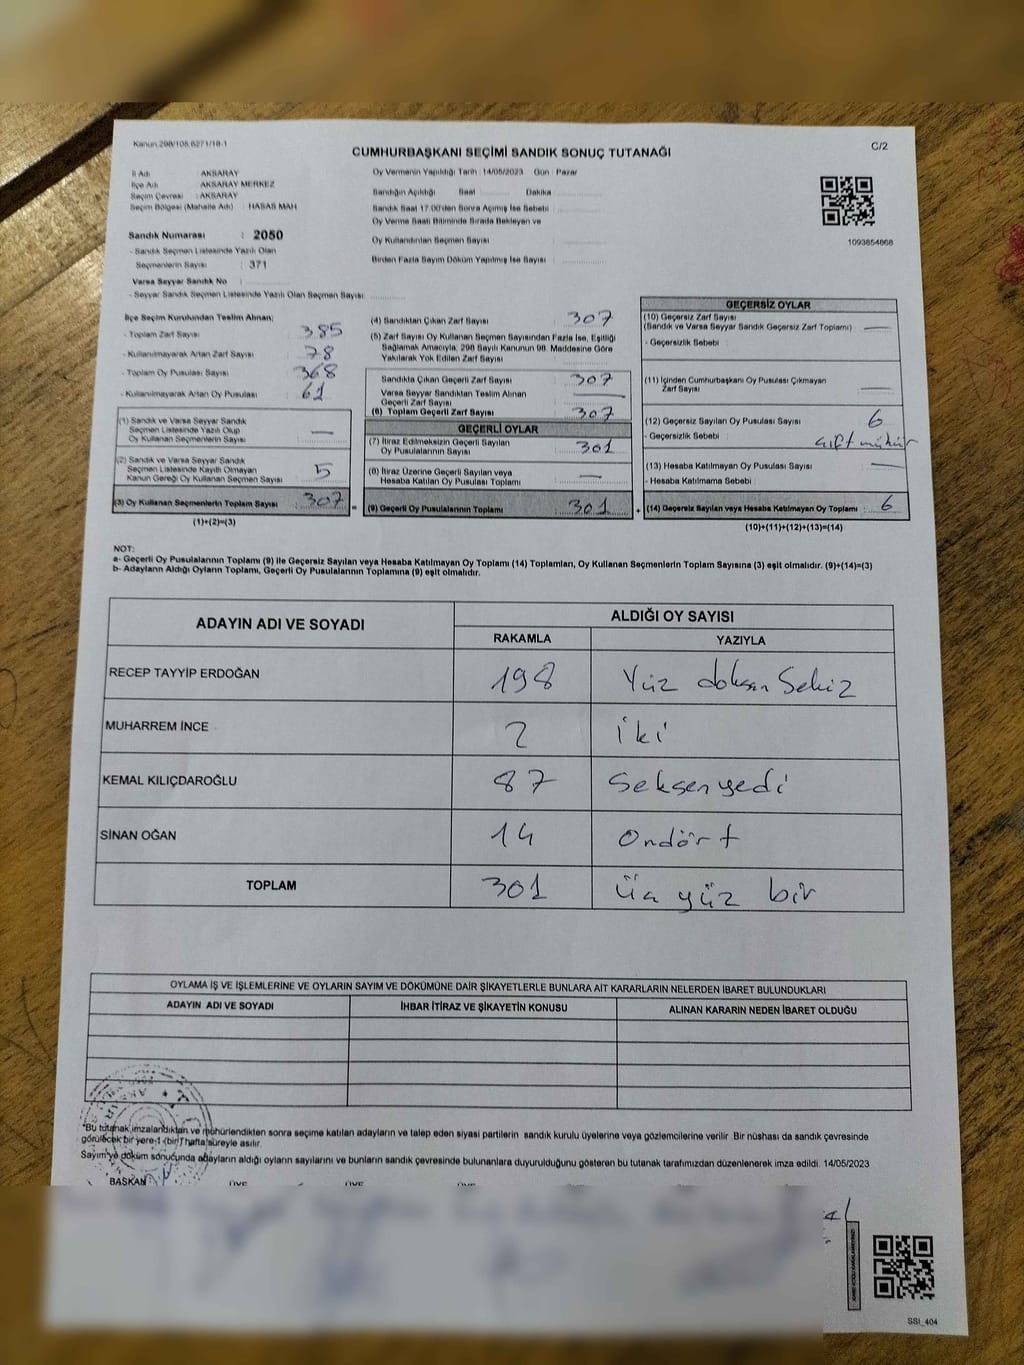 Kanun:298/105,6271/18-1
C/2
CUMHURBAŞKANI SEÇİMİ SANDIK SONUÇ TUTANAĞI
İl Adı : AKSARAY
İlçe Adı : AKSARAY MERKEZ
Seçim Çevresi : AKSARAY
Seçim Bölgesi (Mahalle Adı) : HASAS MAH
Sandık Numarası : 2050
- Sandık Seçmen Listesinde Yazılı Olan
Seçmenlerin Sayısı : 371
Varsa Seyyar Sandık No :
- Seyyar Sandık Seçmen Listesinde Yazılı Olan Seçmen Sayısı:
Oy Vermenin Yapıldığı Tarih :14/05/2023 Gün : Pazar
Sandığın Açıldığı Saat Dakika
Sandık Saat 17.00'den Sonra Açımış İse Sebebi :
Oy Verme Saati Bitiminde Sırada Bekleyen ve
Oy Kullandırılan Seçmen Sayısı
Birden Fazla Sayım Döküm Yapılmış İse Sayısı
1093854868
İlçe Seçim Kurulundan Teslim Alınan;
- Toplam Zarf Sayısı : 385
- Kullanılmayarak Artan Zarf Sayısı : 78
- Toplam Oy Pusulası Sayısı : 368
- Kullanılmayarak Artan Oy Pusulası : 61
(1) Sandık ve Varsa Seyyar Sandık
Seçmen Listesinde Yazılı Olup
Oy Kullanan Seçmenlerin Sayısı : —
(2) Sandık ve Varsa Seyyar Sandık
Seçmen Listesinde Kayıtlı Olmayan
Kanun Gereği Oy Kullanan Seçmen Sayısı : 5
(3) Oy Kullanan Seçmenlerin Toplam Sayısı : 307
(1)+(2)=(3)
(4) Sandıktan Çıkan Zarf Sayısı : 307
(5) Zarf Sayısı Oy Kullanan Seçmen Sayısından Fazla İse, Eşitliği
Sağlamak Amacıyla, 298 Sayılı Kanunun 98. Maddesine Göre
Yakılarak Yok Edilen Zarf Sayısı
Sandıkta Çıkan Geçerli Zarf Sayısı : 307
Varsa Seyyar Sandıktan Teslim Alınan
Geçerli Zarf Sayısı —
(6) Toplam Geçerli Zarf Sayısı : 307
GEÇERLİ OYLAR
(7) İtiraz Edilmeksizin Geçerli Sayılan
Oy Pusulalarının Sayısı : 301
(8) İtiraz Üzerine Geçerli Sayılan veya
Hesaba Katılan Oy Pusulası Toplamı : —
= (9) Geçerli Oy Pusulalarının Toplamı : 301
GEÇERSİZ OYLAR
(10) Geçersiz Zarf Sayısı
(Sandık ve Varsa Seyyar Sandık Geçersiz Zarf Toplamı) : —
- Geçersizlik Sebebi :
(11) İçinden Cumhurbaşkanı Oy Pusulası Çıkmayan
Zarf Sayısı : —
(12) Geçersiz Sayılan Oy Pusulası Sayısı : 6
- Geçersizlik Sebebi : çift mühür
(13) Hesaba Katılmayan Oy Pusulası Sayısı : —
- Hesaba Katılmama Sebebi :
+ (14) Geçersiz Sayılan veya Hesaba Katılmayan Oy Toplamı : 6
(10)+(11)+(12)+(13)=(14)
NOT:
a- Geçerli Oy Pusulalarının Toplamı (9) ile Geçersiz Sayılan veya Hesaba Katılmayan Oy Toplamı (14) Toplamları, Oy Kullanan Seçmenlerin Toplam Sayısına (3) eşit olmalıdır. (9)+(14)=(3)
b- Adayların Aldığı Oyların Toplamı, Geçerli Oy Pusulalarının Toplamına (9) eşit olmalıdır.
ADAYIN ADI VE SOYADI ALDIĞI OY SAYISI
RAKAMLA YAZIYLA
RECEP TAYYİP ERDOĞAN 198 Yüz doksan Sekiz
MUHARREM İNCE 2 iki
KEMAL KILIÇDAROĞLU 87 Seksenyedi
SİNAN OĞAN 14 Ondört
TOPLAM 301 Üç yüz bir
OYLAMA İŞ VE İŞLEMLERİNE VE OYLARIN SAYIM VE DÖKÜMÜNE DAİR ŞİKAYETLERLE BUNLARA AİT KARARLARIN NELERDEN İBARET BULUNDUKLARI
ADAYIN ADI VE SOYADI İHBAR İTİRAZ VE ŞİKAYETİN KONUSU ALINAN KARARIN NEDEN İBARET OLDUĞU
*Bu tutanak imzalandıktan ve mühürlendikten sonra seçime katılan adayların ve talep eden siyasi partilerin sandık kurulu üyelerine veya gözlemcilerine verilir. Bir nüshası da sandık çevresinde
görülecek bir yere 1 (bir) hafta süreyle asılır.
Sayım ve döküm sonucunda adayların aldığı oyların sayılarını ve bunların sandık çevresinde bulunanlara duyurulduğunu gösteren bu tutanak tarafımızdan düzenlenerek imza edildi. 14/05/2023
BAŞKAN ÜYE ÜYE ÜYE
SSI_404